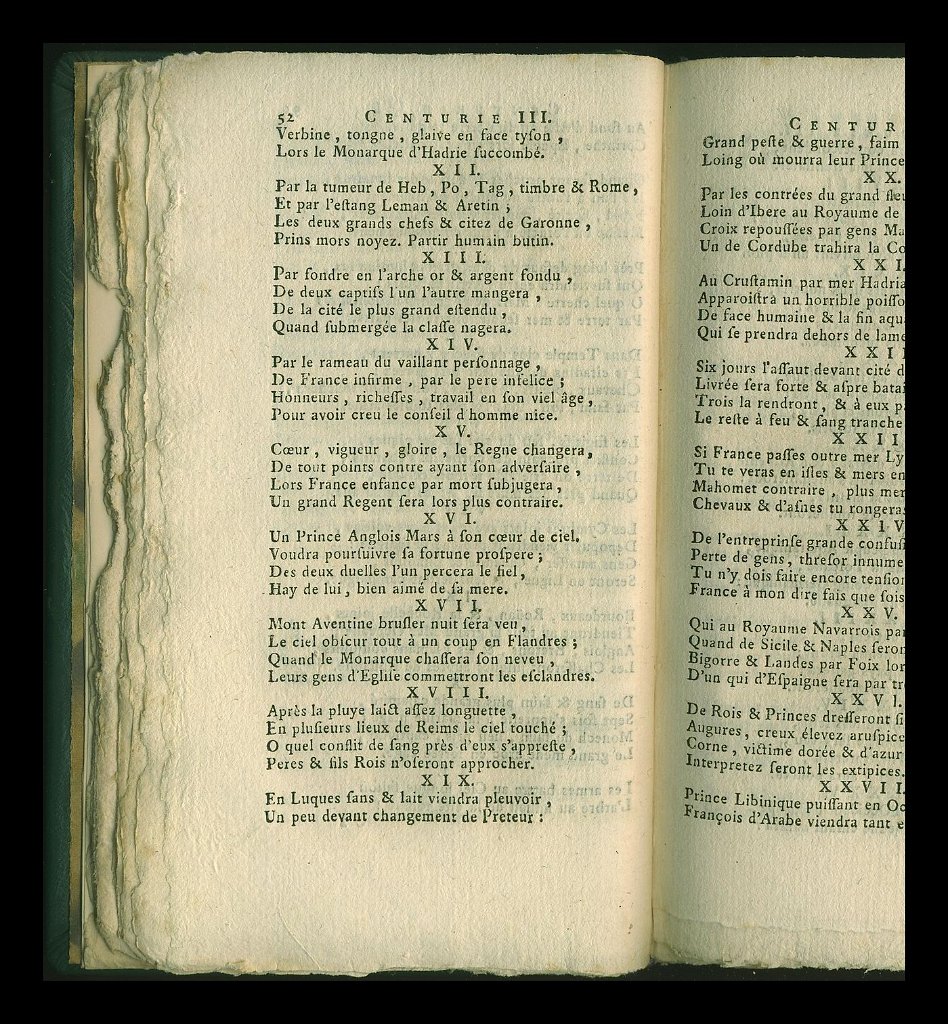 52 CENTURIE III.
Verbine , tongne , glaive en face tyſon ,
Lors le Monarque d'Hadrie ſuccombé.
XII.
Par la tumeur de Heb , Po , Tag , timbre & Rome ,
Et par l'eſtang Leman & Aretin ;
Les deux grands chefs & citez de Garonne ,
Prins mors noyez. Partir humain butin.
XIII.
Par fondre en l'arche or & argent fondu ,
De deux captifs l'un l'autre mangera ,
De la cité le plus grand eſtendu ,
Quand ſubmergée la claſſe nagera.
XIV.
Par le rameau du vaillant perſonnage ,
De France infirme , par le pere infelice ;
Honneurs , richeſſes , travail en ſon viel âge ,
Pour avoir creu le conſeil d'homme nice.
XV.
Cœur , vigueur , gloire , le Regne changera ,
De tout points contre ayant ſon adverſaire ,
Lors France enfance par mort ſubjugera ,
Un grand Regent ſera lors plus contraire.
XVI.
Un Prince Anglois Mars à ſon cœur de ciel.
Voudra pourſuivre ſa fortune proſpere ;
Des deux duelles l'un percera le fiel ,
Hay de lui , bien aimé de ſa mere.
XVII.
Mont Aventine bruſler nuit ſera veu ,
Le ciel obſcur tout à un coup en Flandres ;
Quand le Monarque chaſſera ſon neveu ,
Leurs gens d'Egliſe commettront les eſclandres.
XVIII.
Après la pluye laict aſſez longuette ,
En pluſieurs lieux de Reims le ciel touché ;
O quel conflit de ſang près d'eux s'appreſte ,
Peres & fils Rois n'oſeront approcher.
XIX.
En Luques ſans & lait viendra pleuvoir ,
Un peu devant changement de Preteur :
CENTUR
Grand peſte & guerre , faim
Loing où mourra leur Prince
XX.
Par les contrées du grand fleu
Loin d'Ibere au Royaume de
Croix repouſſées par gens Ma
Un de Cordube trahira la Co
XXI.
Au Cruſtamin par mer Hadria
Apparoiſtra un horrible poiſſo
De face humaine & la fin aqu
Qui ſe prendra dehors de lame
XXII
Six jours l'aſſaut devant cité d
Livrée ſera forte & aſpre batai
Trois la rendront , & à eux p
Le reſte à feu & ſang tranche
XXII
Si France paſſes outre mer Ly
Tu te veras en iſles & mers en
Mahomet contraire , plus mer
Chevaux & d'aſnes tu rongera
XXIV
De l'entreprinſe grande confuſi
Perte de gens , threſor innume
Tu n'y dois faire encore tenſion
France à mon dire fais que ſois
XXV.
Qui au Royaume Navarrois par
Quand de Sicile & Naples ſeron
Bigorre & Landes par Foix lor
D'un qui d'Eſpaigne ſera par tr
XXVI.
De Rois & Princes dreſſeront ſi
Augures , creux élevez aruſpice
Corne , victime dorée & d'azur
Interpretez ſeront les extipices.
XXVII
Prince Libinique puiſſant en Oc
François d'Arabe viendra tant e